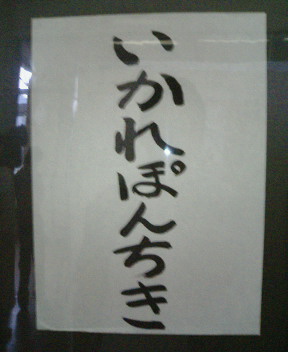 いかれぽんちき